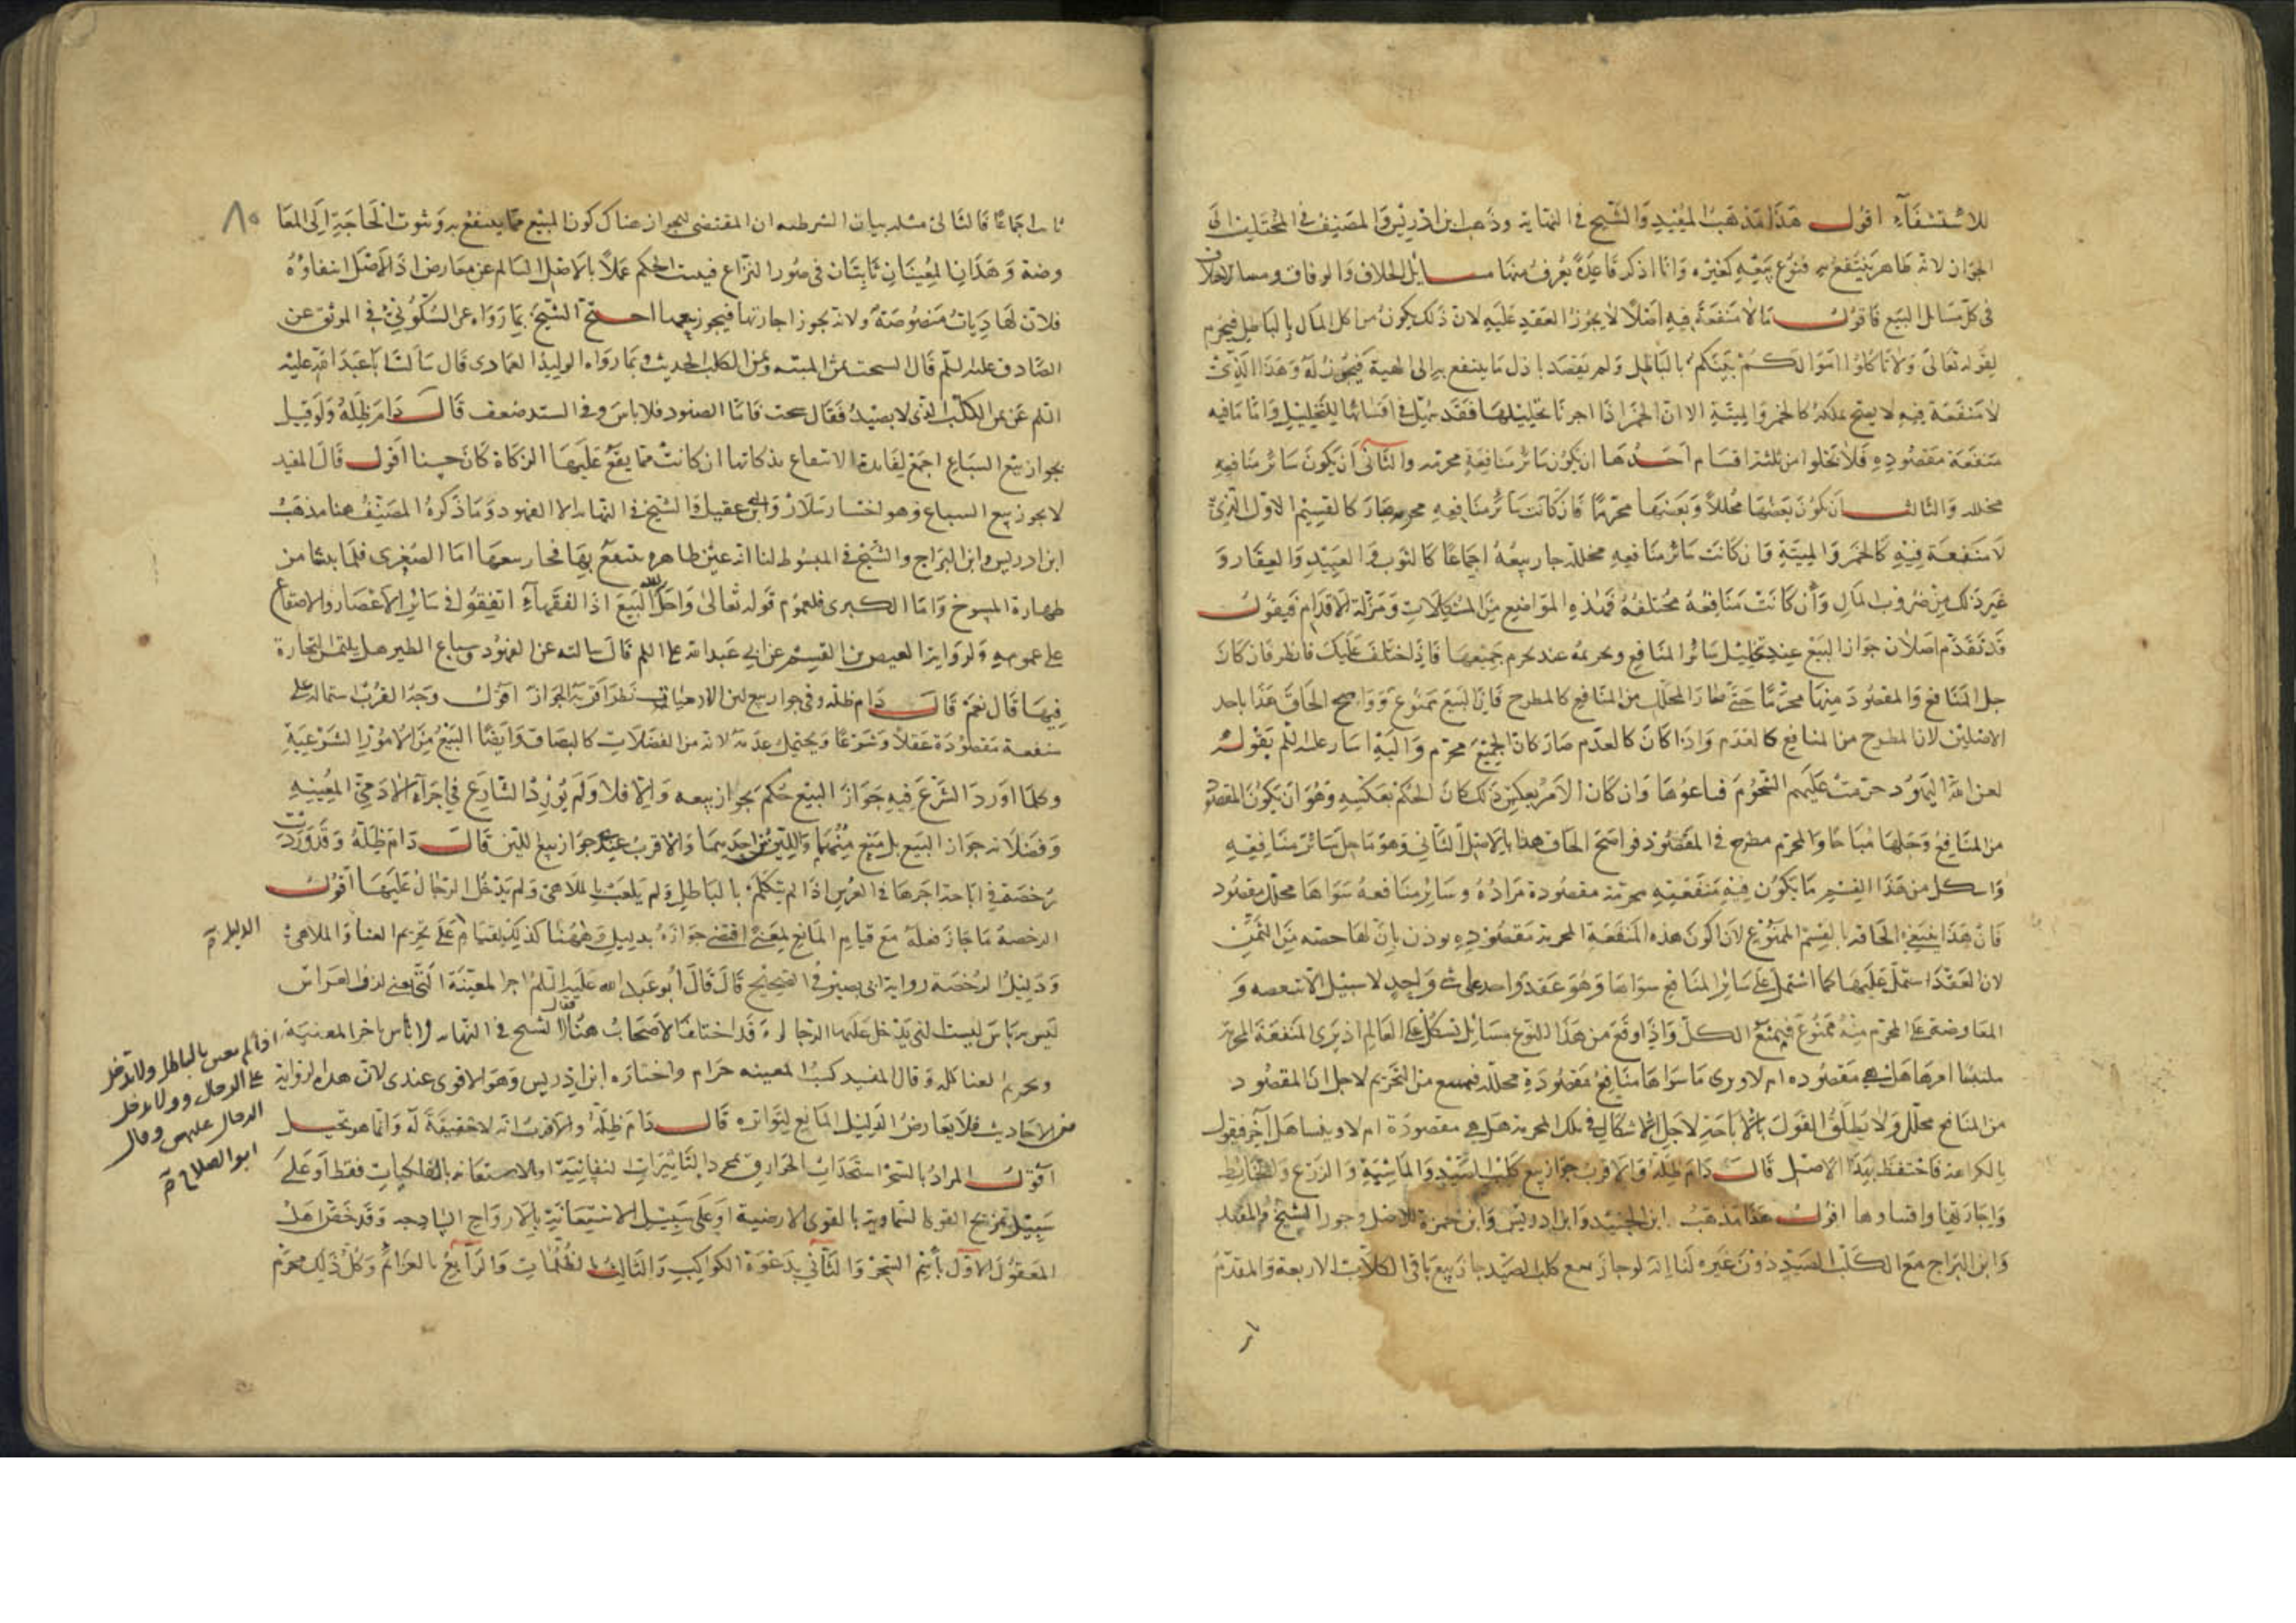 للاستشفاء اقول هذا مذهب المفيد والشيخ في النهاية وذهب ابن ادريس والمصنف في المختلف الى
الجواز لانه طاهر ينتفع به فشرع بيعه كغيره وانا اذكر قاعدة يعرف منها مسايل الخلاف والوفاق
في كل مسائل البيع فاقول ما لا منفعة فيه اصلا لا يجوز العقد عليه لان ذلك يكون من اكل المال بالباطل فيحرم
لقوله تعالى ولا تاكلوا اموالكم بينكم بالباطل ولم يقصد باذل ما ينتفع به الى الهبة فيجوز له وهذا الذي
لا منفعة فيه لا يصح تملكه كالخمر والميتة الا ان الخمر اذا اجرنا تخليلها فقد سهل في اقتنائها للتخليل واما ما فيه
منفعة مقصودة فلا تخلوا من ثلثة اقسام احدها ان يكون سائر منافعه محرمه والثاني ان يكون سائر منافعه
محلله والثالث ان يكون بعضها محللا وبعضها محرما فان كانت سائر منافعه محرمه صار كالقسم الاول الذي
لا منفعة فيه كالخمر والميتة وان كانت سائر منافعه محللة جاز بيعه اجماعا كالثوب والعبيد والعقار و
غير ذلك من ضروب المال وان كانت منافعه مختلفة فهذه المواضيع من المشكلات ومزلة الاقدام فيقول
قد تقدم اصلان جواز البيع عند تحليل سائر المنافع وتحريمه عند تحريم جميعها فاذا اختلف عليك فانظر فان كان
جل المنافع والمقصود منها محرما حتى صار المحلل من المنافع كالمطرح فان البيع ممنوع وواضح الحاق هذا باحد
الاصلين لان المطرح من المنافع كالعدم واذا كان كالعدم صار كان الجميع محرم واليه اشار عليه السلم بقوله
لعن الله اليهود حرمت عليهم الشحوم فباعوها وان كان الامر بعكس ذلك كان الحكم بعكسه وهو ان يكون المقصود
من المنافع وجلها مباحا والمحرم مطرح في المقصود فواضح الحاق هذا بالاصل الثاني وهو ما حل سائر منافعه
واشكل من هذا القسم ما يكون فيه منفعته محرمة مقصودة مرادة وسائر منافعه سواها محلل مقصود
فان هذا ينبغي الحاقه بالقسم الممنوع لان كون هذه المنفعة المحرمة مقصودة يوذن بان لها حصه من الثمن
لان العقد اشتمل عليها كما اشتمل على سائر المنافع سواها وهو عقد واحد على شي واحد لا سبيل الى تبعيضه و
المعاوضة على المحرم منه ممنوع فيمنع الكل واذا وقع من هذا النوع مسائل تشكل على العالم اذ يرى المنفعة المحرمة
ملتبسا امرها هل هي مقصوده ام لا ويرى ما سواها منافع مقصودة محلله فيمتنع من التحريم لاجل ان المقصود
من المنافع محلل ولا يطلق القول بالاباحة لاجل الاشكال في تلك المحرمة هل هي مقصودة ام لا
بالكراهة فاحتفظ بهذا الاصل قال دام ظله والاقرب جواز بيع كلب الصيد والماشية والزرع والحائط
واجارتها واقتناوها اقول هذا مذهب ابن الجنيد وابن ادريس وابن حمزة للاصل وجوز الشيخ والمفيد
وابن البراج مع الكلب الصيد دون غيره لنا انه لو جاز بيع كلب الصيد جاز بيع باقي الكلاب الاربعة والمقدم
٨٥
ثابت اجماعا فالتالي مثله بيان الشرطيه ان المقتضي للجواز هناك كون المبيع مما ينتفع به وثبوت الحاجة الى المعا
وضة وهذان المعنيان ثابتان في صور النزاع فيثبت الحكم عملا بالاصل السالم عن معارض اذ الاصل انتفاوه
فلان لها ديات منصوصة ولانه يجوز اجارتها فيجوز بيعها احتج الشيخ بما رواه عن السكوني في الموثق عن
الصادق عليه السلم قال السحت ثمن الميته وثمن الكلب الحديث وبما رواه الوليد العمادي قال سألت ابا عبد الله عليه
السلم عن ثمن الكلب الذي لا يصيد فقال سحت فاما الصيود فلا باس وفي السند ضعف قال دام ظله ولو قيل
بجواز بيع السباع اجمع لفايدة الانتفاع بذكاتها ان كانت مما يقع عليها الزكاة كان حسنا اقول قال المفيد
لا يجوز بيع السباع وهو اختيار سلار وابن عقيل والشيخ في النهاية الا الفهود وما ذكره المصنف هنا مذهب
ابن ادريس وابن البراج والشيخ في المبسوط لنا انه عين طاهرة ينتفع بها فجاز بيعها اما الصغرى فلما بينا من
طهارة المسوخ واما الكبرى فلعموم قوله تعالى واحل الله البيع اذ الفقهاء اتفقوا في سائر الاعصار والاصقاع
على عمومه ولرواية العيص بن القسم عن ابي عبد الله عليه السلم قال سالته عن الفهود وسباع الطير هل يلتمس التجارة
فيها قال نعم قال دام ظله وفي جواز بيع لبن الادميات نظر اقربه الجواز اقول وجه القرب اشتماله على
منفعة مقصودة عقلا وشرعا ويحتمل عدمه لانه من الفضلات كالبصاق وايضا البيع من الامور الشرعية
وكلما اورد الشرع فيه جواز البيع حكم بجواز بيعه والا فلا ولم يورد الشارع في اجزاء الادمي المعينة
وفضلاته جواز البيع بل منع منهما واللبن من احديهما والاقرب عندي جواز بيع اللبن قال دام ظله وقد وردت
رخصة في اباحة اجرها في العرس اذا لم تتكلم بالباطل ولم يلعب بالملاهي ولم يدخل الرجال عليها اقول
الرخصة ما جاز فعله مع قيام المانع لمعنى اقتضى جوازه بدليل وههنا كذلك لقيام على تحريم الغنا والملاهي
ودليل الرخصة رواية ابي بصير في الصحيح قال قال ابو عبد الله عليه السلم اجر المغنية التي تزف العرائس
ليس به باس ليست التي يدخل عليها الرجال وقد اختلف الاصحاب هنا فقال الشيخ في النهاية لا باس باجر المغنية
وتحريم الغنا كله وقال المفيد كسب المغنيه حرام واختاره ابن ادريس وهو الاقوى عندي لان هذه الرواية
من الاحاديث فلا يعارض الدليل المانع لتواتره قال دام ظله والاقرب انه لا حقيقة له وانما هو تخييل
اقول المراد بالسحر استحداث الخوارق بمجرد التاثيرات النفسانية او بالاستعانة بالفلكيات فقط او على
سبيل تمزيج القوى السماوية بالقوى الارضية او على سبيل الاستعانة بالارواح الساذجه وقد خص اهل
المعقول الاول باسم السحر والثاني بدعوة الكواكب والثالث بالطلسمات والرابع بالعزائم وكل ذلك محرم
الدليل
اذا لم تغن بالباطل ولا تدخل
على الرجال ولا يدخل
الرجال عليهن وقال
ابو الصلاح